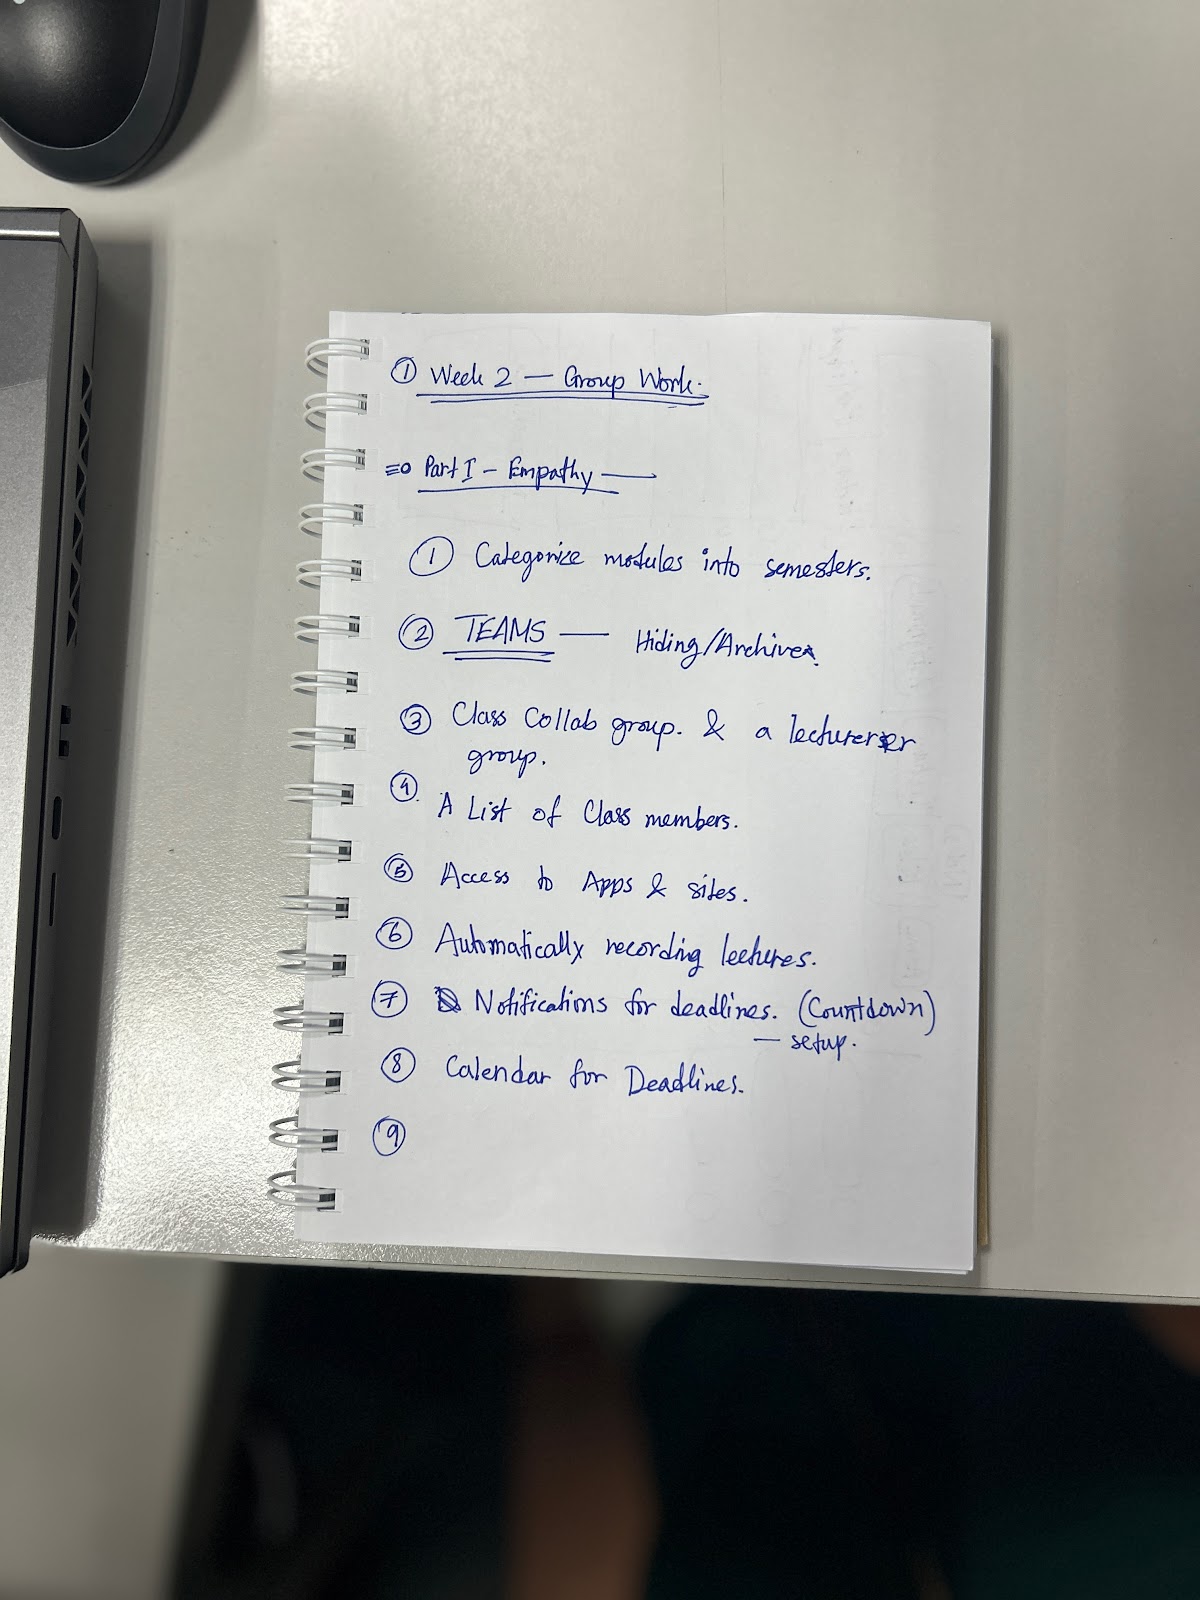 ① Week 2 — Group Work.
Part I - Empathy —
① Categorize modules into semesters.
② TEAMS — Hiding/Archive.
③ Class Collab group. & a lecturer
group.
④ A List of Class members.
⑤ Access to Apps & sites.
⑥ Automatically recording lectures.
⑦ Notifications for deadlines. (Countdown)
— setup.
⑧ Calendar for Deadlines.
⑨